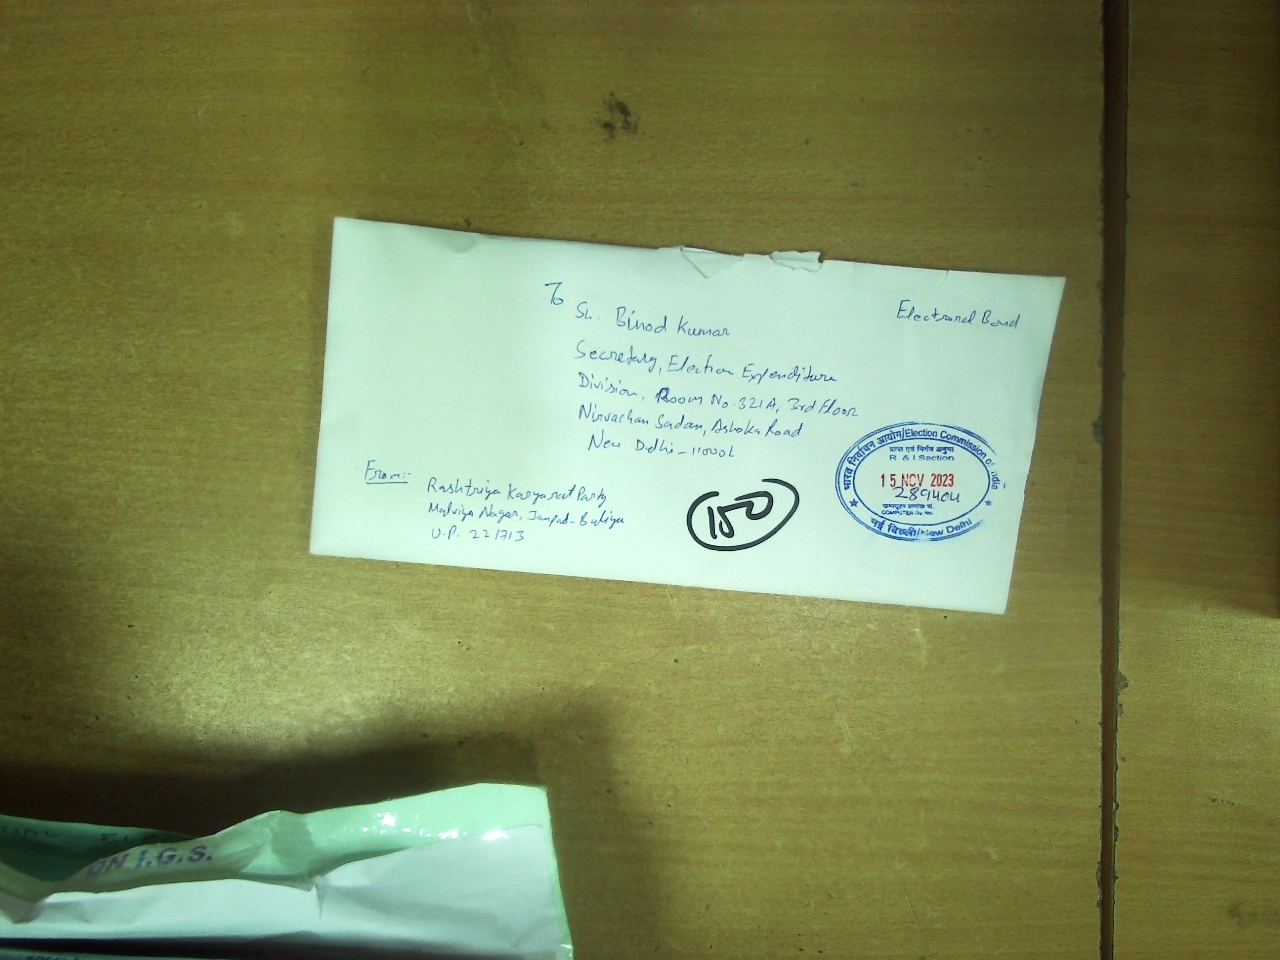 To
Sh. Binod Kumar
Secretary, Election Expenditure
Division, Room No. 321A, 3rd Floor
Nirvachan Sadan, Ashoka Road
New Delhi - 110001
Electoral Bond
From:-
Rashtriya Karyarat Party
Malviya Nagar, Janpad - Baliya
U.P. 221713
150
भारत निर्वाचन आयोग/Election Commission of India
प्राप्त एवं निर्गम अनुभाग
R & I Section
15 NOV 2023
289404
COMPUTER Dy. No.
नई दिल्ली/New Delhi
ON I.G.S.